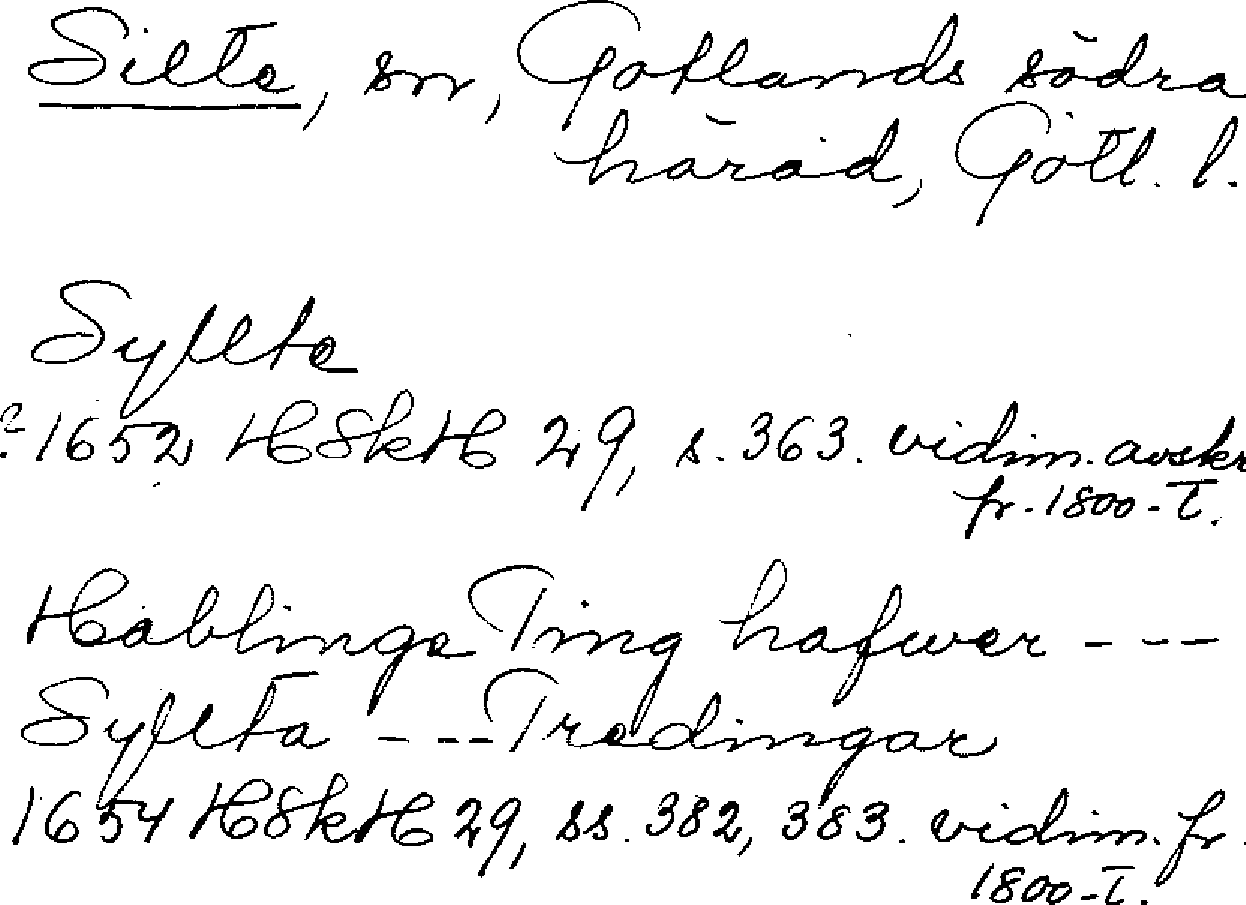 Silte, sn, Gotlands södra
härad, Gotl. l.
Syllte
? 1652 HSkH 29, s. 363. vidim. avskr
fr. 1800-t.
Hablinge Ting hafwer ---
Syllta --- Tredingar
1654 HSkH 29, ss. 382, 383. vidim. fr.
1800-t.